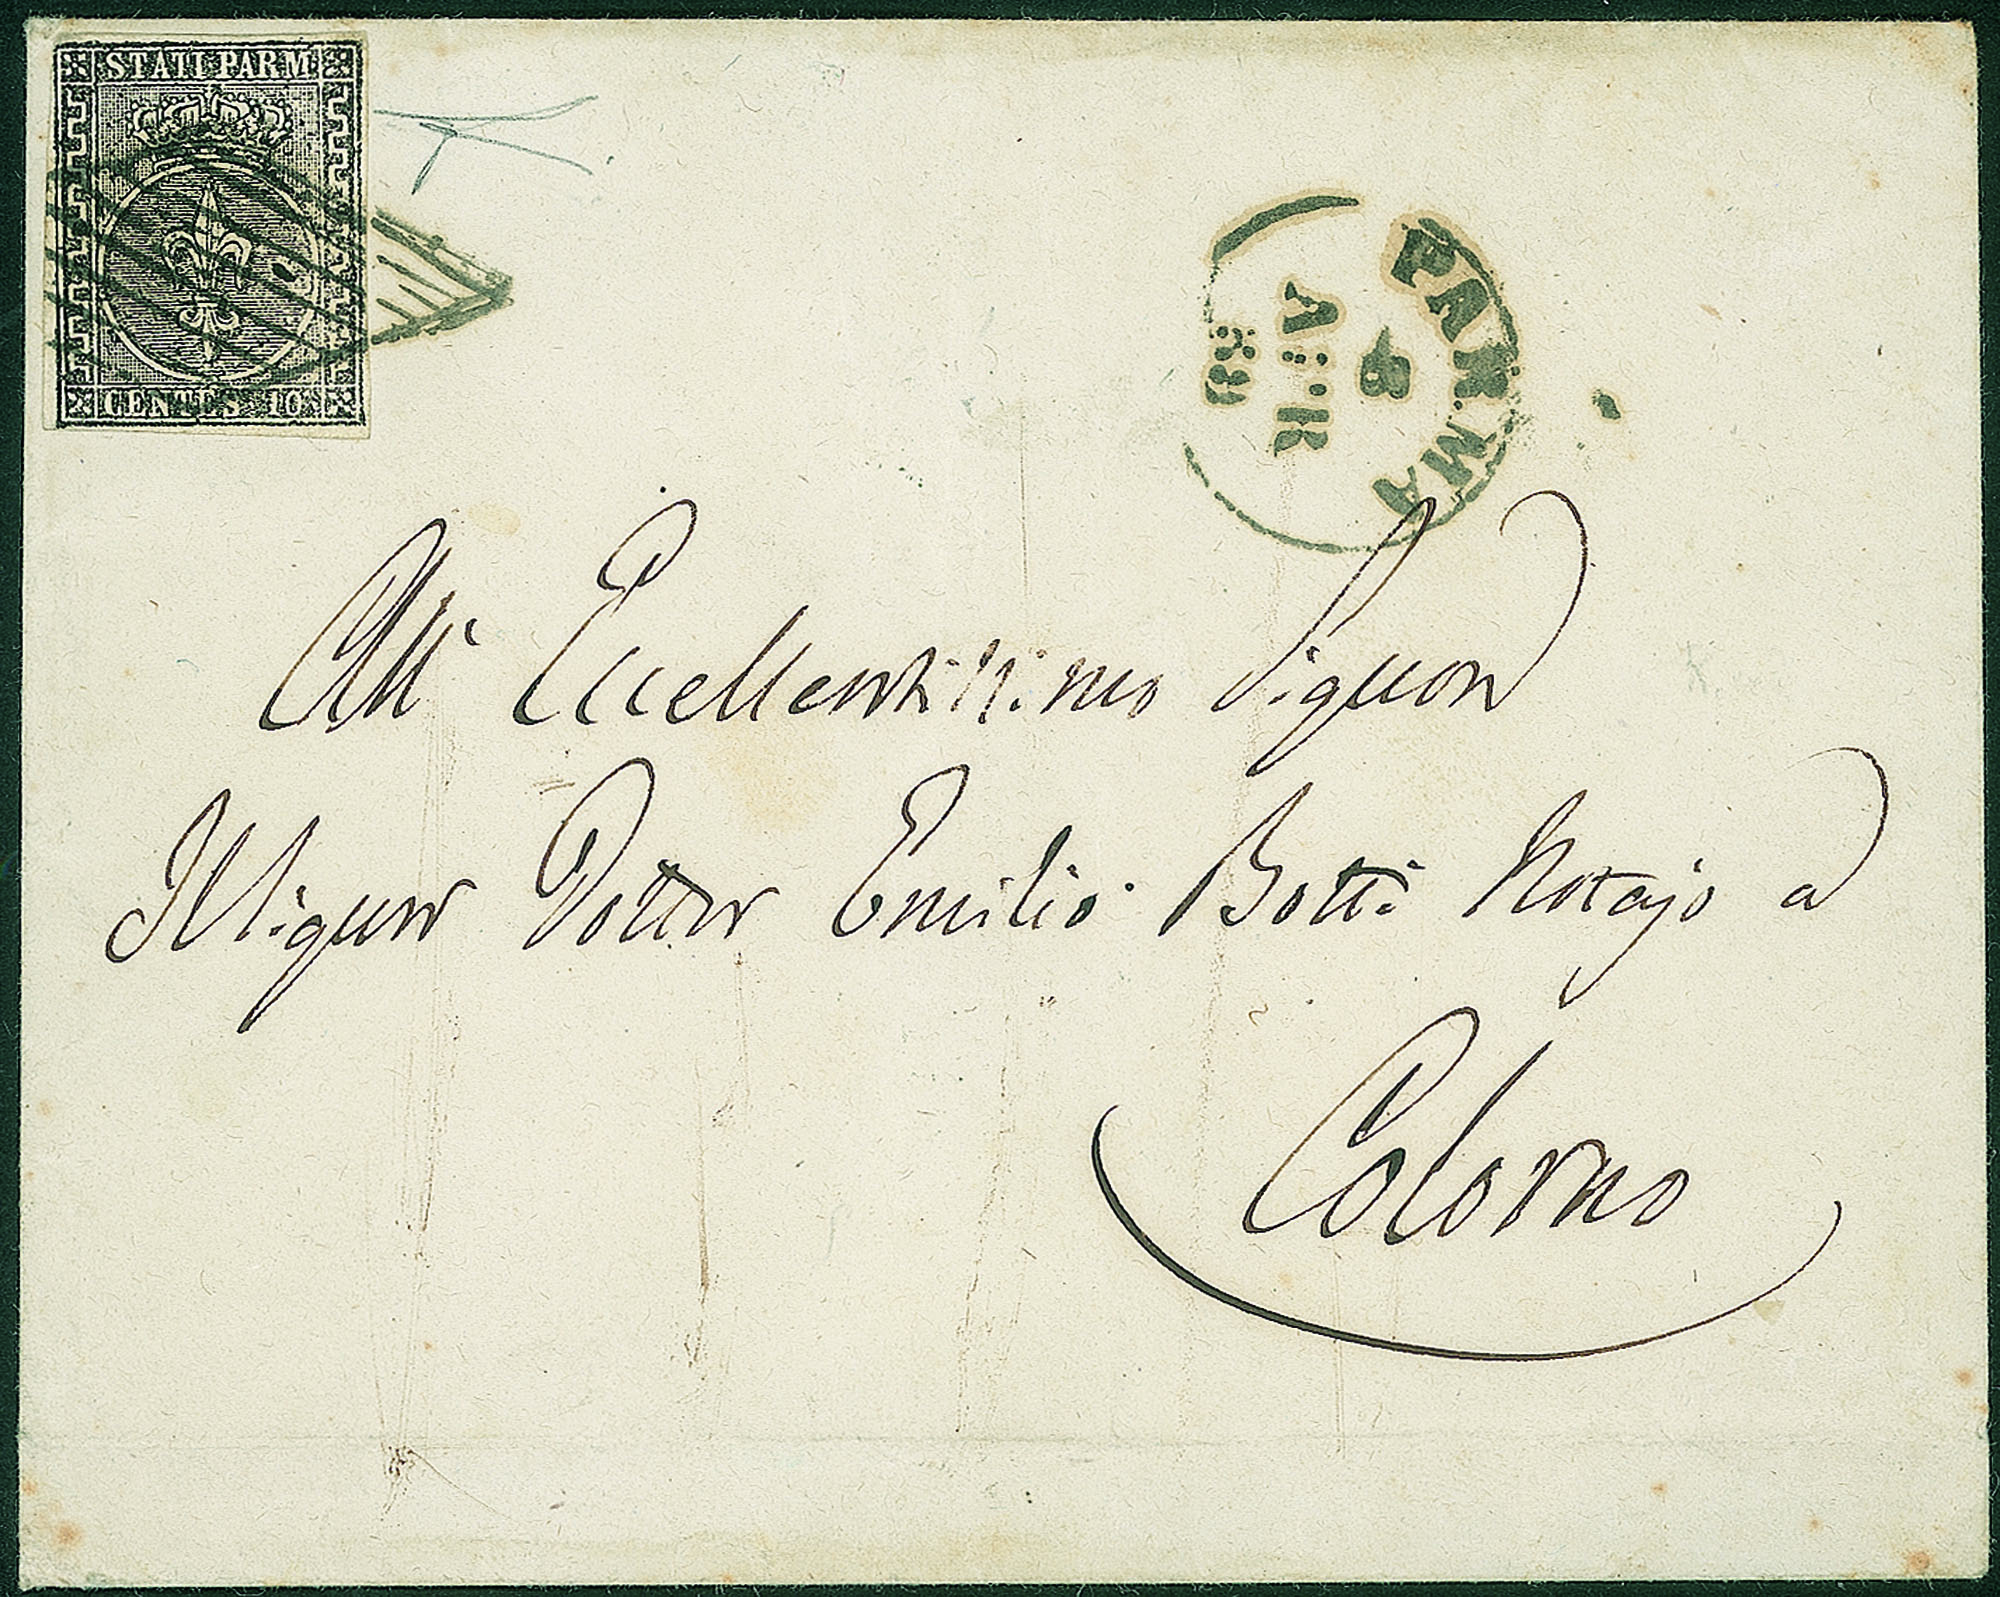 STATI PARM
CENTES 10
PARMA
8
APR
53
All' Eccellentissimo Signor
Il Signor Dotter Emilio Botti Notajo a
Colorno